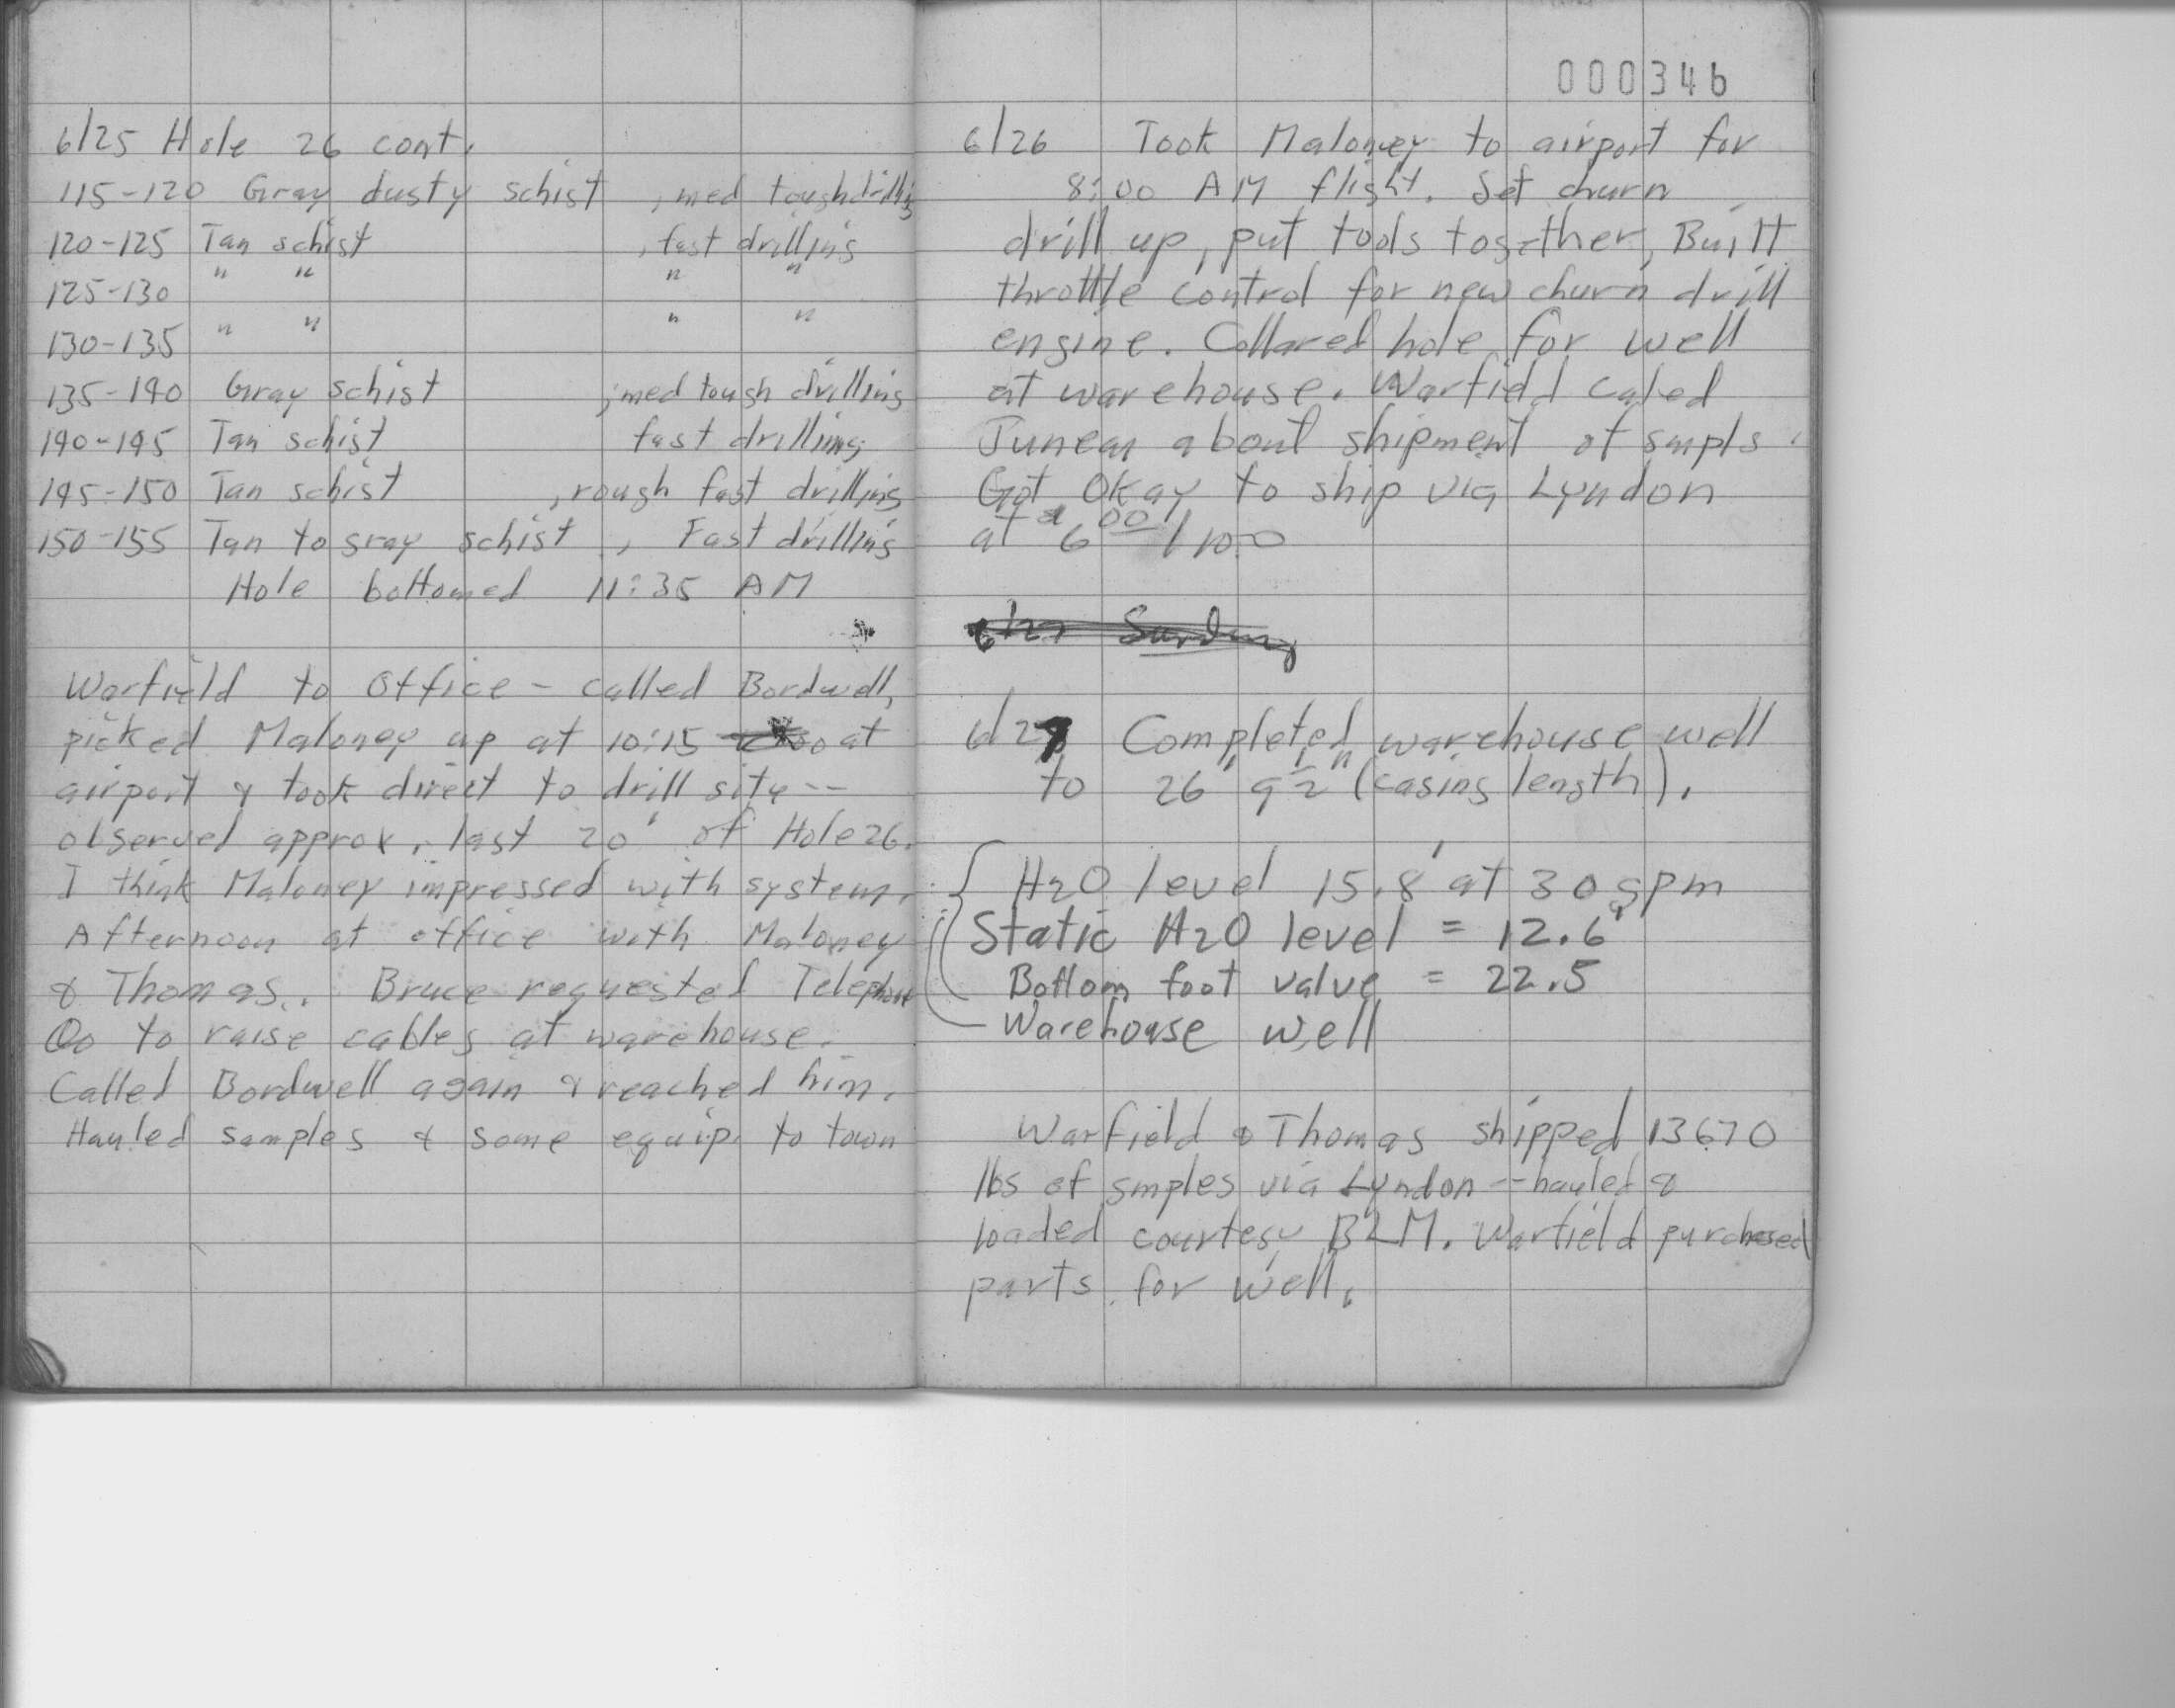 6/25 Hole 26 cont.
115-120 Gray dusty schist , med tough drilling
120-125 Tan schist , fast drilling
125-130 " " " "
130-135 " " " "
135-140 Gray schist ; med tough drilling
140-145 Tan schist fast drilling
145-150 Tan schist , rough fast drilling
150-155 Tan to gray schist , Fast drilling
Hole bottomed 11:35 AM
Warfield to Office - called Bordwell,
picked Maloney up at 10:15 at
airport & took direct to drill site --
observed approx. last 20' of Hole 26.
I think Maloney impressed with system.
Afternoon at office with Maloney
& Thomas. Bruce requested Telephone
Co to raise cables at warehouse.
Called Bordwell again & reached him.
Hauled samples & some equip. to town
000346
6/26 Took Maloney to airport for
8:00 AM flight. Set churn
drill up, put tools together, Built
throttle control for new churn drill
engine. Collared hole for well
at warehouse. Warfield called
Juneau about shipment of smpls.
Got Okay to ship via Lyndon
at 6 00 /100
6/27 Sunday
6/27 Completed warehouse well
to 26' 9 1/2" (casing length).
H2O level 15.8' at 30 gpm
Static H2O level = 12.6'
Bottom foot valve = 22.5
Warehouse well
Warfield & Thomas shipped 13670
lbs of smples via Lyndon -- hauled &
loaded courtesy BLM. Warfield purchased
parts for well.